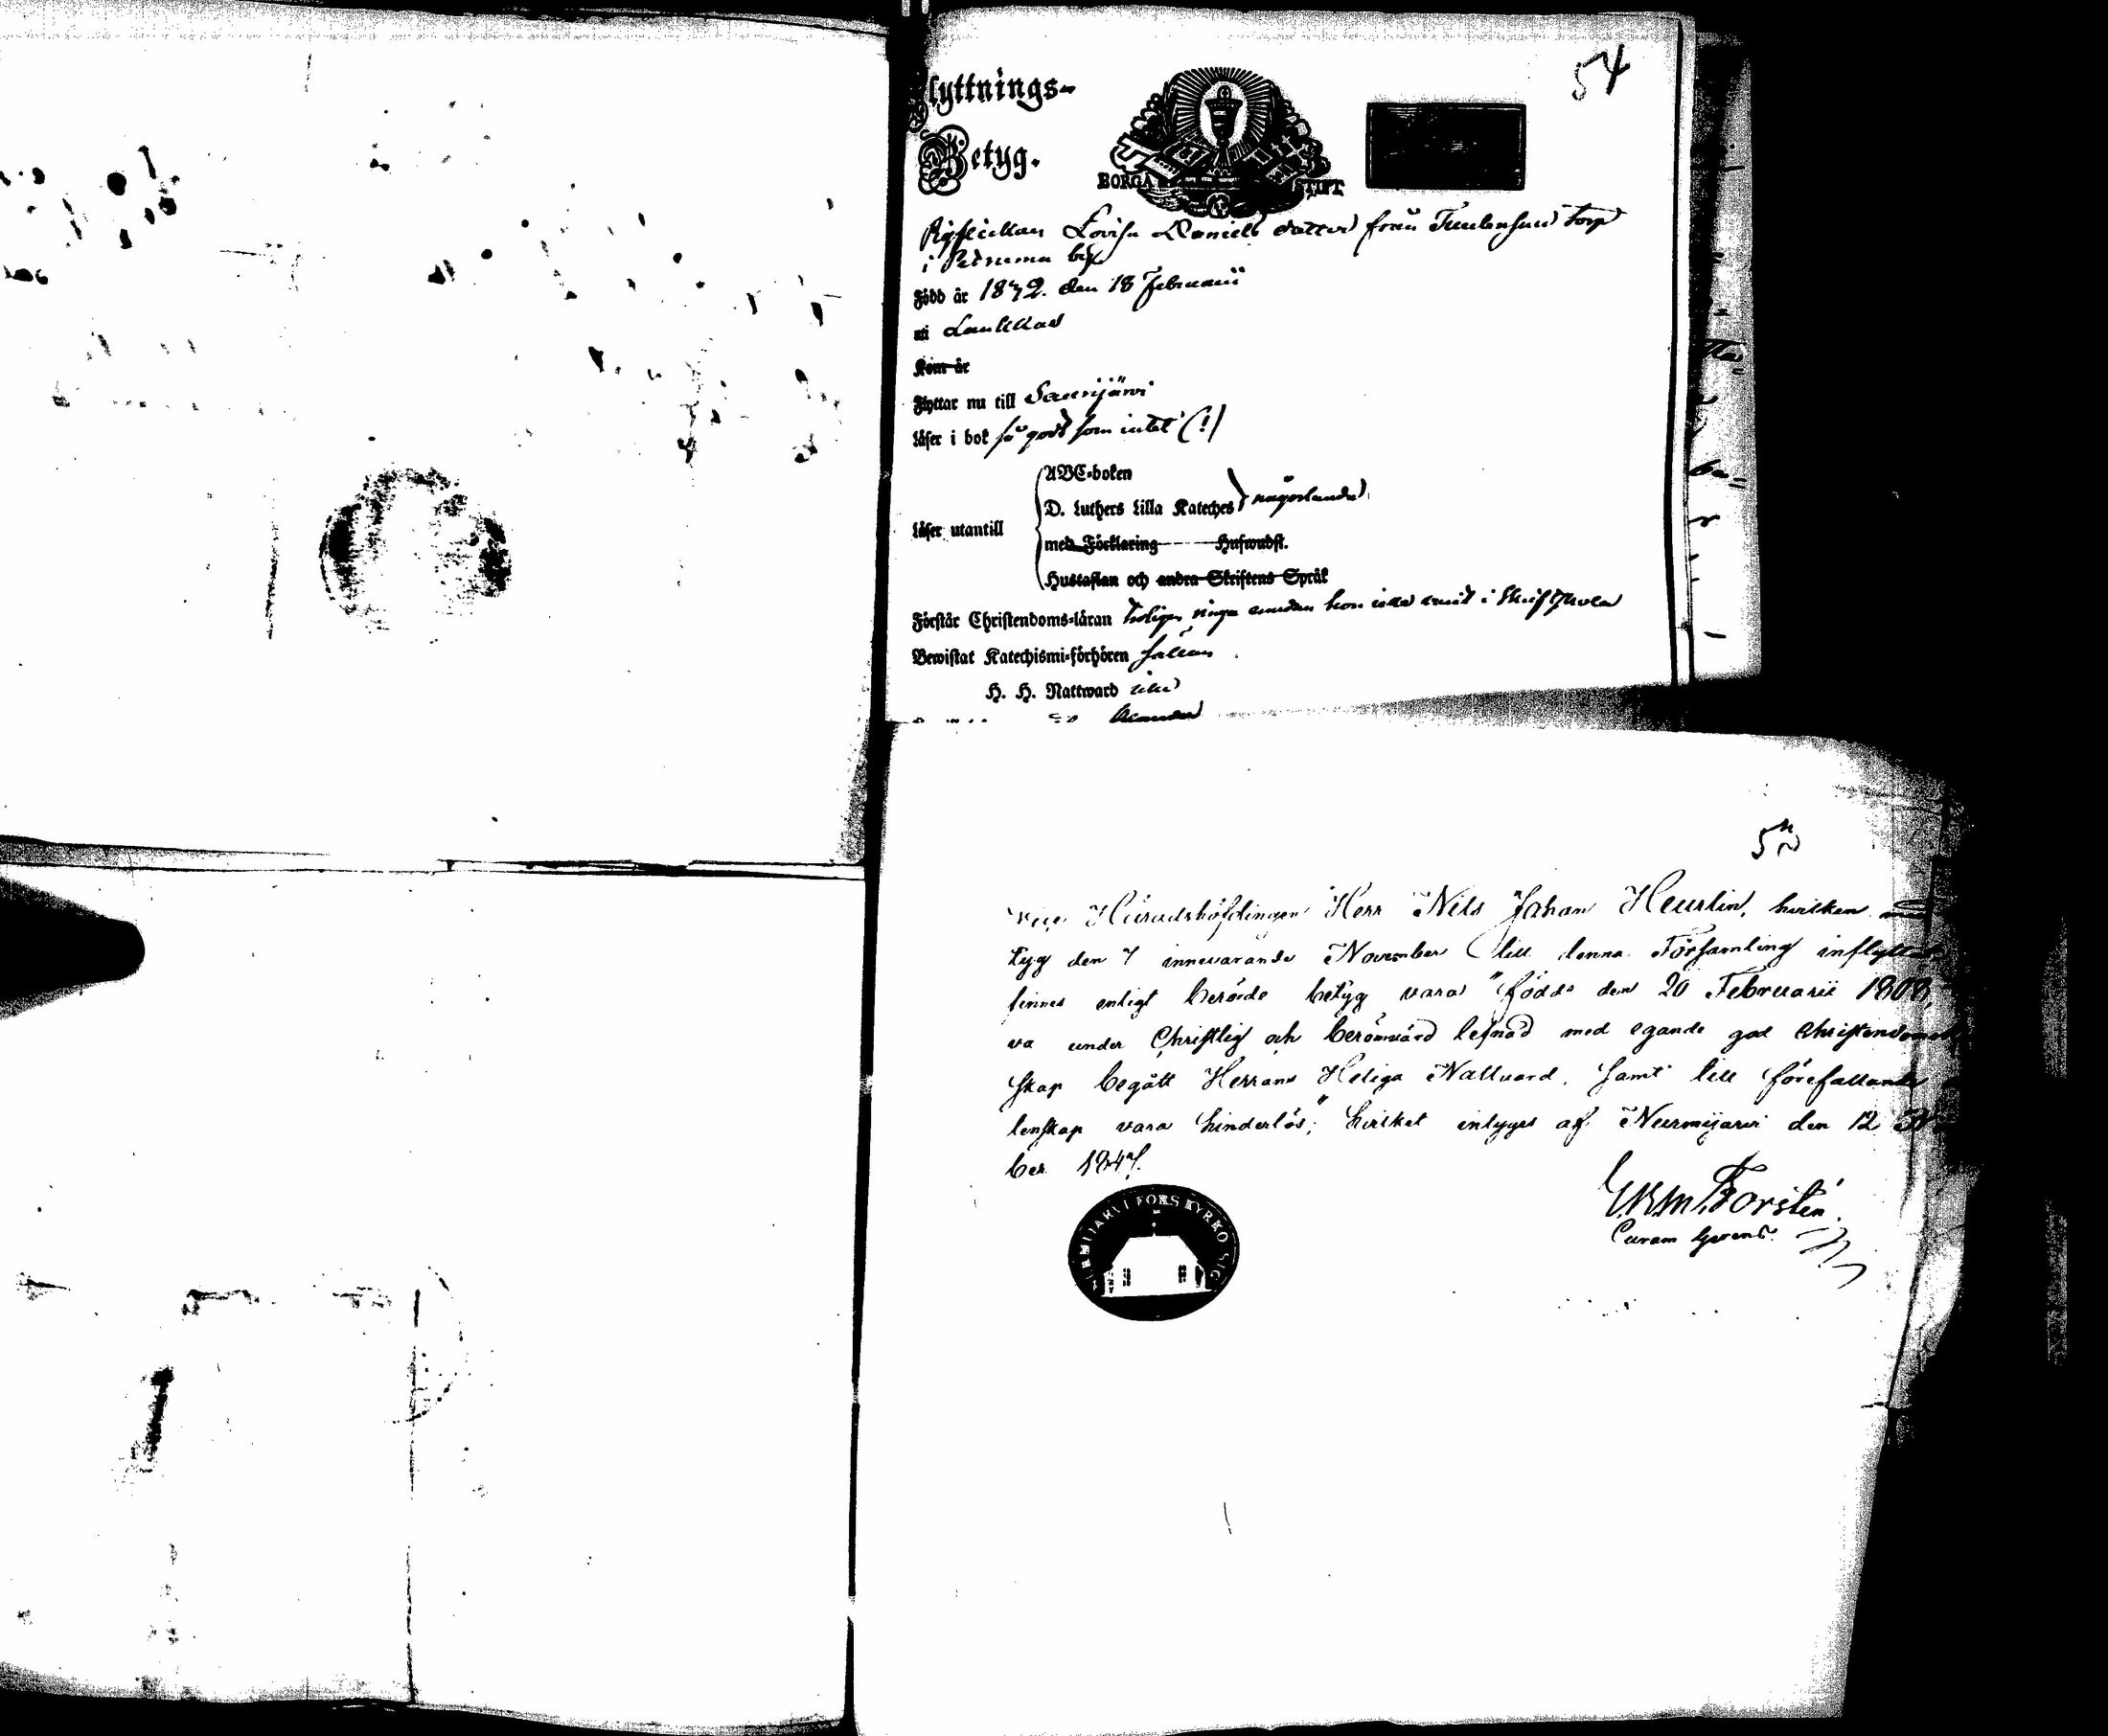 54
Flyttnings-
Betyg.
BORGÅ STIFT
Lovisa Daniels dotter från torp
i by
Född år 1872. den 18 Februarii
i Laukkas
Kom år
Flyttar nu till Saarijärvi
Läser i bok så godt som intet (!)
ABC-boken
D. Luthers Lilla Kateches någorlunda
Läser utantill
med Förklaring Hufwudst.
Hustaflan och andra Skriftens Språk
Förstår Christendoms-läran ringa emedan hon icke varit i Skriftskola
Bewistat Katechismi-förhören sällan
H. H. Nattward icke
Vice Häradshöfdingen Herr Nils Johan Heurlin, hvilken
tyg den 7 innevarande November till denna Församling inflyttat
finnes enligt berörde betyg vara "född den 20 Februarii 1808,
va under Christlig och berömvärd lefnad med egande god Christendoms
skap begått Herrans Heliga Nattvard, samt till förefallande
lenskap vara hinderlös", hvilket intygas af Nurmijärvi den 12
ber 1847.
Borstén.
Curam gerens.
NURMIJÄRVI FÖRS KYRKO SIG